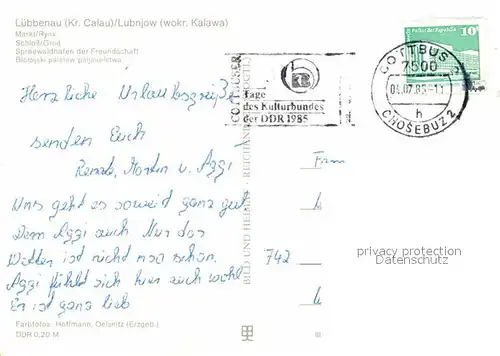 Lübbenau (Kr. Calau)/Lubnjow (wokr. Kalawa)
Markt/Rynk
Schloß/Grod
Spreewaldhafen der Freundschaft
10
COTTBUS 2
7500
04.07.85-11
h
CHOŚEBUZ 2
Tage
des Kulturbundes
der DDR 1985
BILD UND HEIMAT · REICHENBACH
Herzliche Urlaubsgrüße
senden Euch
Renate, Martin u. Aggi
Uns geht es soweit ganz gut
Dem Aggi auch Nur das
Wetter ist nicht so schön.
Aggi fühlt sich hier auch wohl
Er ist ganz lieb
Fam
742
privacy protection
Datenschutz
Farbfotos: Hoffmann, Oelsnitz (Erzgeb.)
DDR 0,20 M